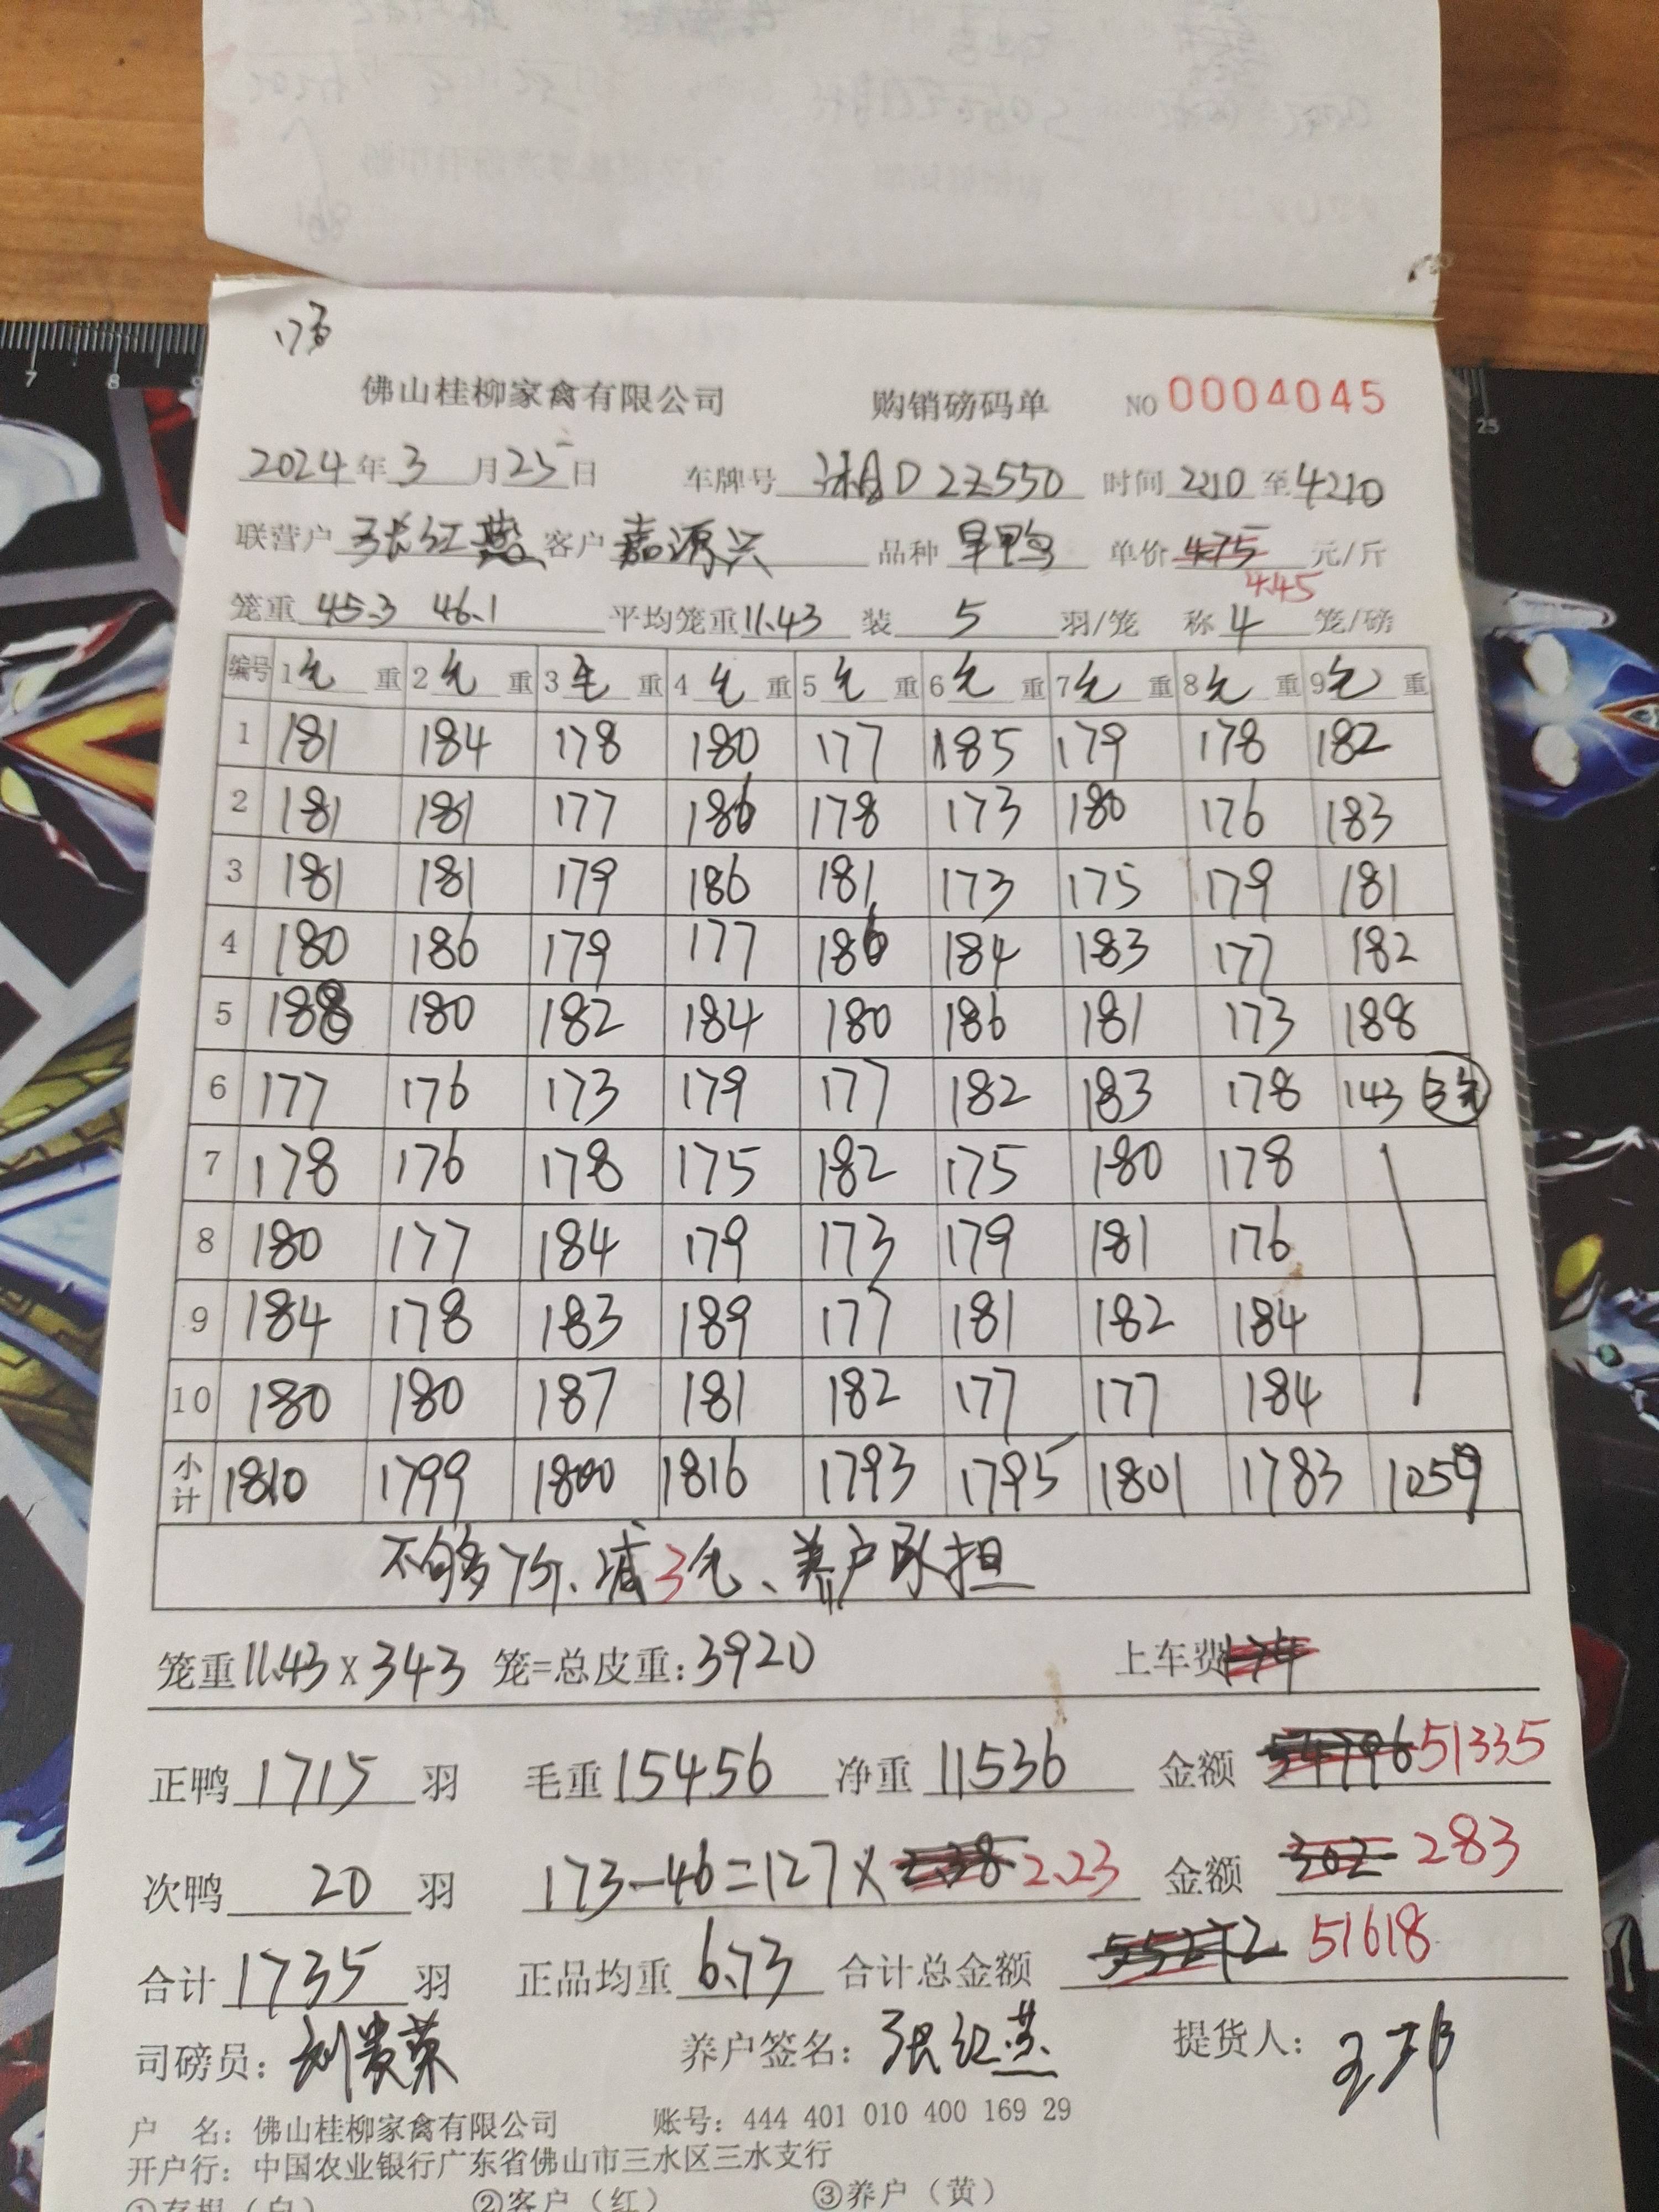 佛山桂柳家禽有限公司 购销磅码单 NO 0004045
2024年3月25日 车牌号 湘D2Z550 时间2210至4210
联营户 张红燕 客户 嘉源兴 品种 旱鸭 单价 475 元/斤
4.45
笼重 45.3 46.1 平均笼重 11.43 装 5 羽/笼 称 4 笼/磅
编号 1毛重 2毛重 3毛重 4毛重 5毛重 6毛重 7毛重 8毛重 9毛重
1 181 184 178 180 177 185 179 178 182
2 181 181 177 186 178 173 180 176 183
3 181 181 179 186 181 173 175 179 181
4 180 186 179 177 186 184 183 177 182
5 188 180 182 184 180 186 181 173 188
6 177 176 173 179 177 182 183 178 143
7 178 176 178 175 182 175 180 178
8 180 177 184 179 173 179 181 176
9 184 178 183 189 177 181 182 184
10 180 180 187 181 182 177 177 184
小计 1810 1799 1800 1816 1793 1795 1801 1783 1059
不够 减3毛、养户承担
笼重 11.43 x 343 笼=总皮重:3920 上车费
正鸭 1715 羽 毛重 15456 净重 11536 金额 54796 51335
次鸭 20 羽 173-46=127 x 2.38 2.23 金额 302 283
合计 1735 羽 正品均重 6.73 合计总金额 55272 51618
司磅员: 刘贵荣 养户签名: 张红燕 提货人:
户 名: 佛山桂柳家禽有限公司 账号: 444 401 010 400 169 29
开户行: 中国农业银行广东省佛山市三水区三水支行
①存根(白) ②客户(红) ③养户(黄)